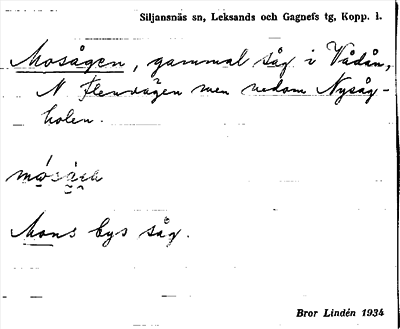 Siljansnäs sn, Leksands och Gagnefs tg, Kopp. l.
Mosågen, gammal såg i Vådån,
N Flenvägen men nedom Nysåg-
holen.
Mons bys såg.
Bror Lindén 1934